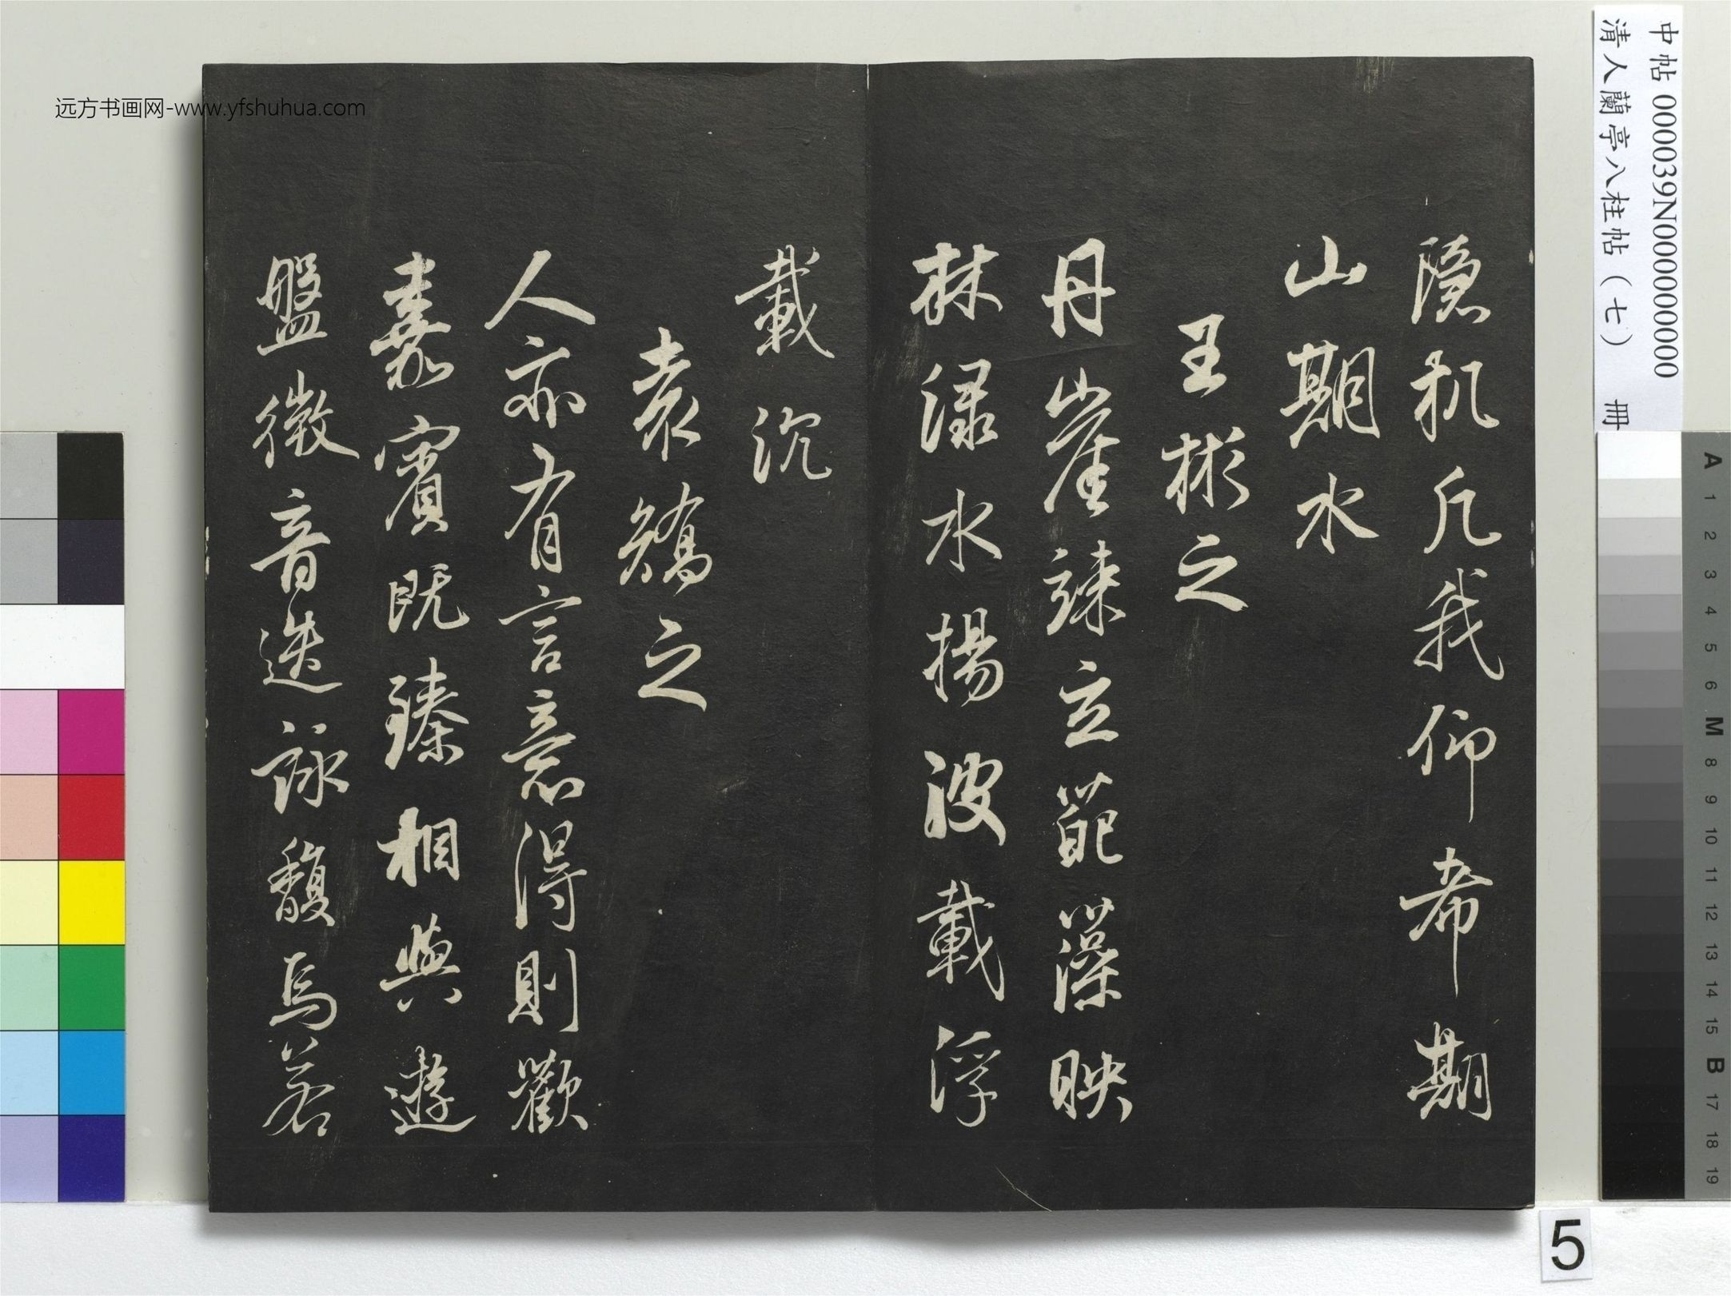 隱机凡我仰希期
山期水
王彬之
丹崖竦立葩藻映
林渌水揚波載浮
載沉
袁嶠之
人亦有言意得則歡
嘉賓既臻相與遊
盤微音迭詠馥焉若
远方书画网-www.yfshuhua.com
中帖 000039N000000000
清人蘭亭八柱帖（七） 冊
A
1
2
3
4
5
6
M
8
9
10
11
12
13
14
15
B
17
18
19
5